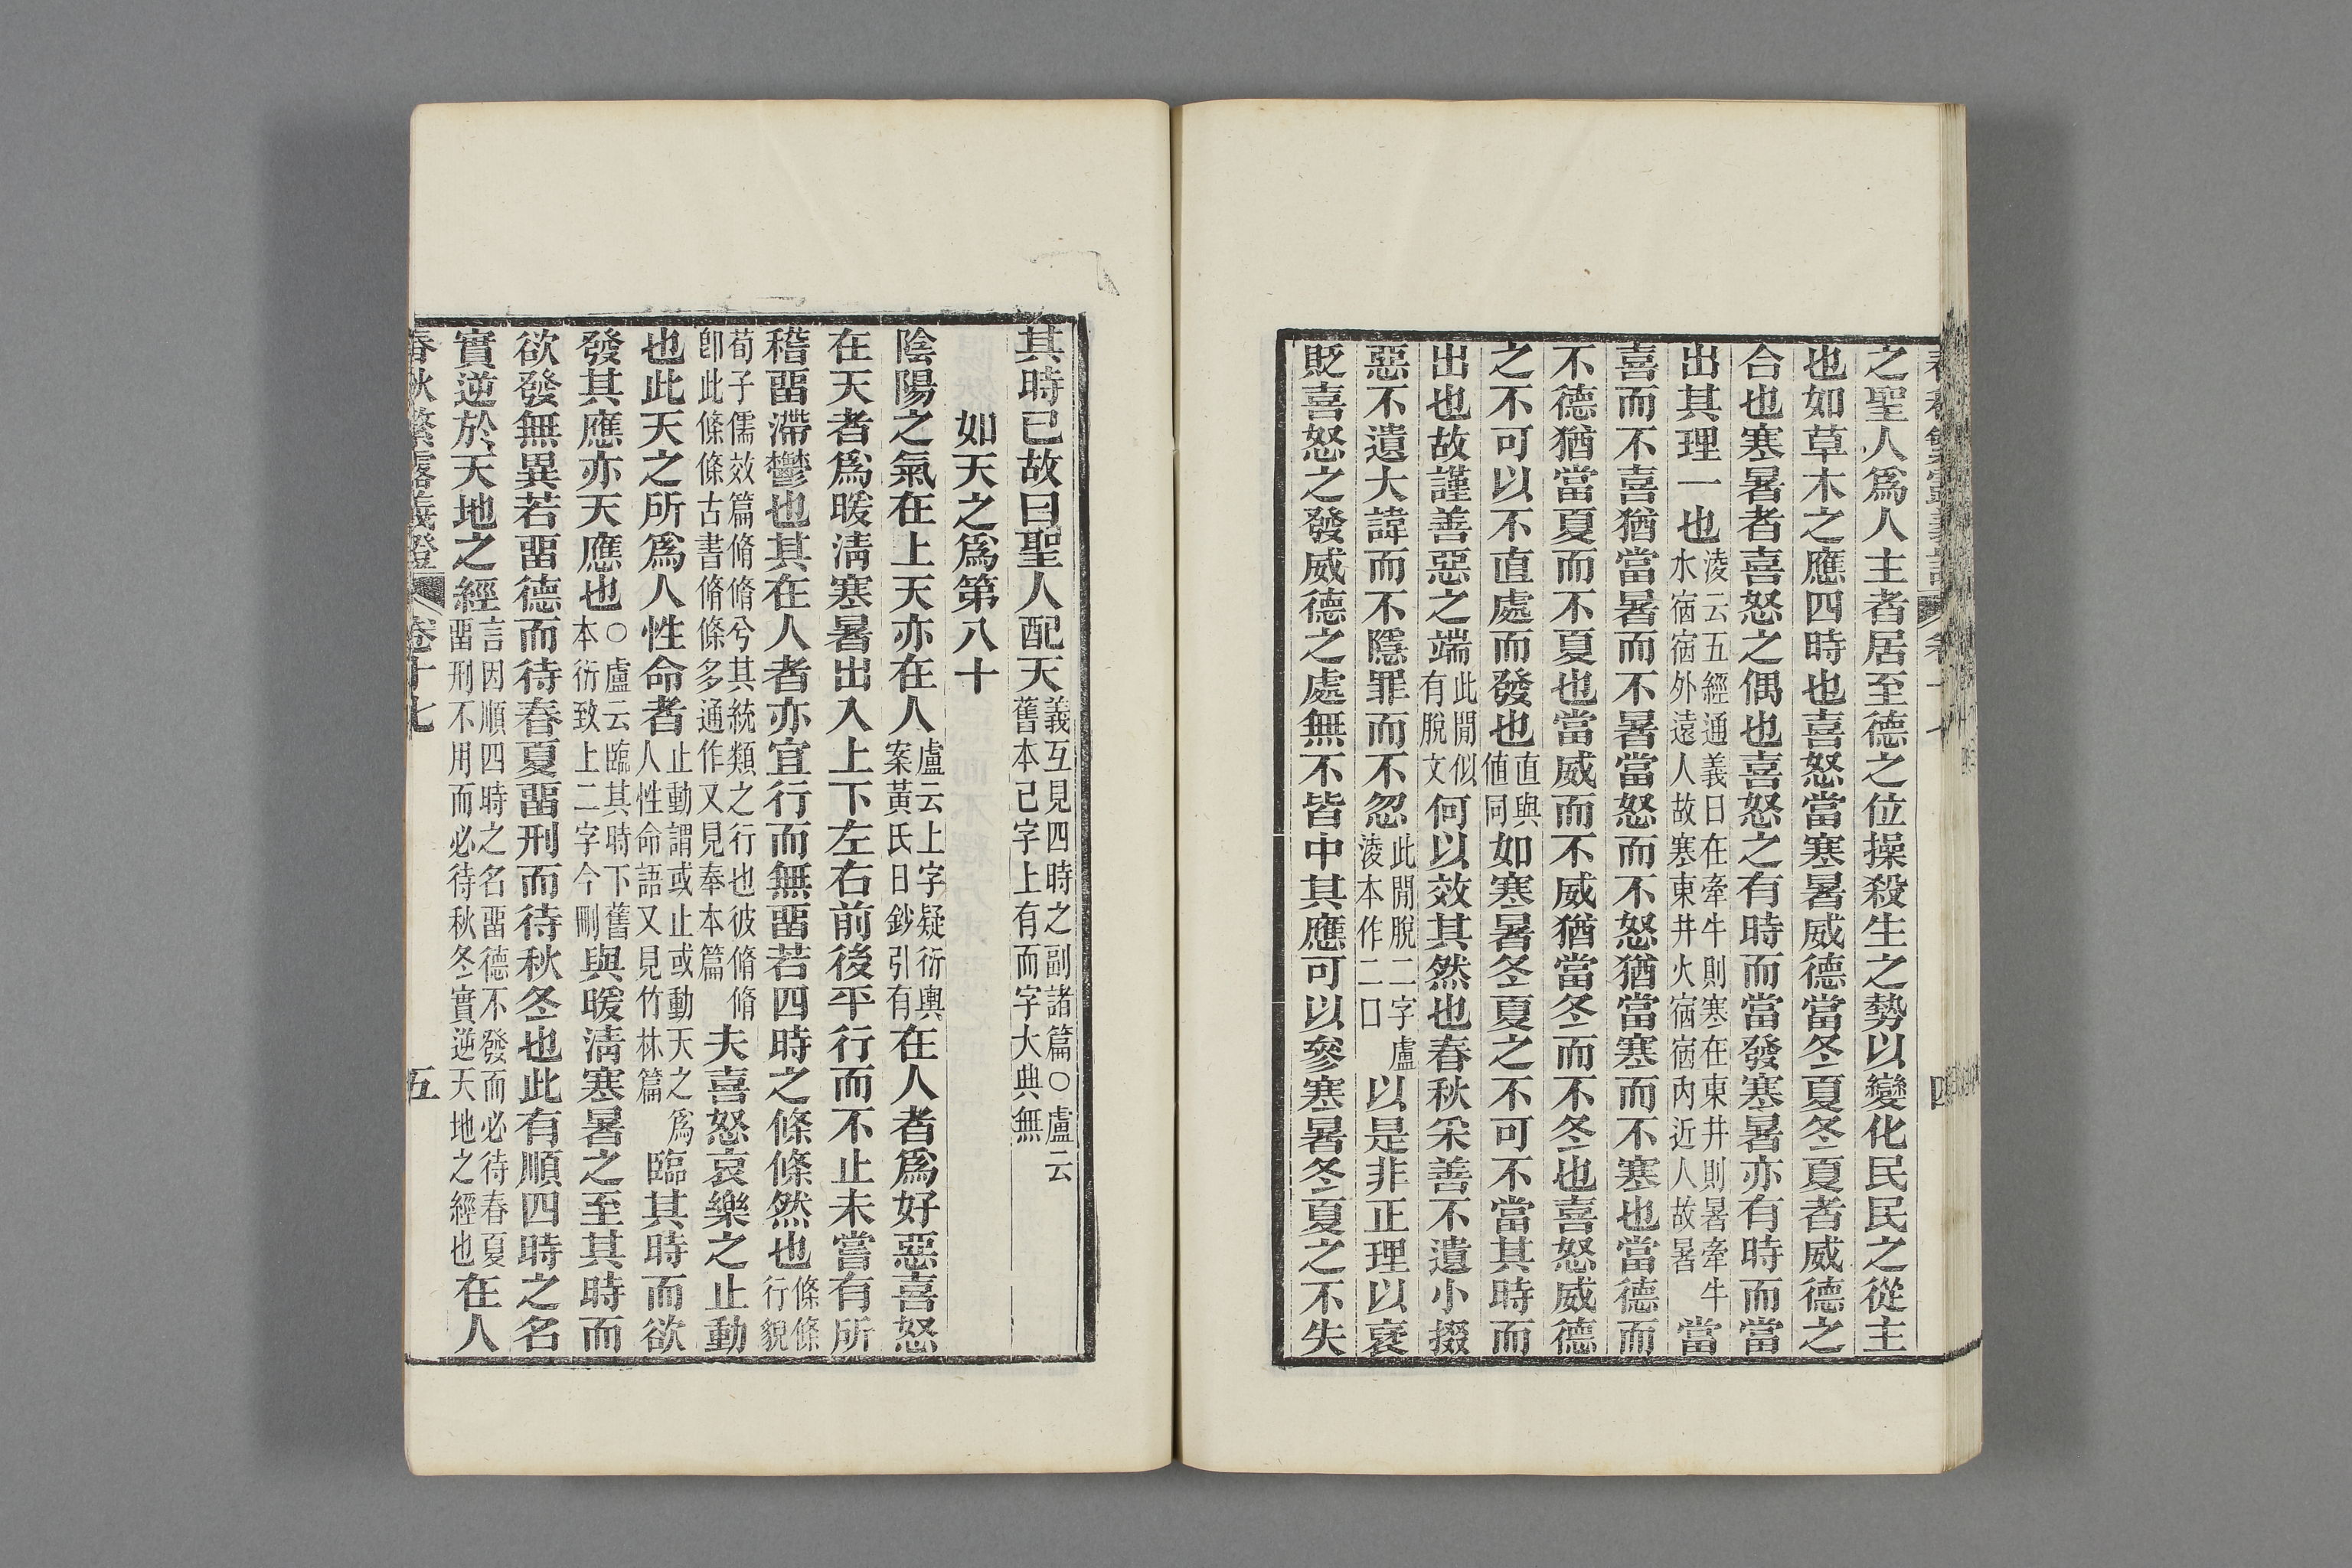 之聖人爲人主者居至德之位操殺生之勢以變化民民之從主
也如草木之應四時也喜怒當寒暑威德當冬夏冬夏者威德之
合也寒暑者喜怒之偶也喜怒之有時而當發寒暑亦有時而當
出其理一也淩云五經通義曰在牽牛則寒在東井則暑牽牛水宿宿外遠人故寒東井火宿宿內近人故暑當
喜而不喜猶當暑而不暑當怒而不怒猶當寒而不寒也當德而
不德猶當夏而不夏也當威而不威猶當冬而不冬也喜怒威德
之不可以不直處而發也直與値同如寒暑冬夏之不可不當其時而
出也故謹善惡之端此閒似有脫文何以效其然也春秋采善不遺小掇
惡不遺大諱而不隱罪而不忽此閒脫二字盧淩本作二口以是非正理以襃
貶喜怒之發威德之處無不皆中其應可以參寒暑冬夏之不失
其時已故曰聖人配天義互見四時之副諸篇○盧云舊本已字上有而字大典無
如天之爲第八十
陰陽之氣在上天亦在人盧云上字疑衍輿案黃氏日鈔引有在人者爲好惡喜怒
在天者爲暖清寒暑出入上下左右前後平行而不止未嘗有所
稽畱滯鬱也其在人者亦宜行而無畱若四時之條條然也條條行貌
荀子儒效篇脩脩兮其統類之行也彼脩脩卽此條條古書脩條多通作又見奉本篇夫喜怒哀樂之止動
也此天之所爲人性命者止動謂或止或動天之爲人性命語又見竹林篇臨其時而欲
發其應亦天應也○盧云臨其時下舊本衍致上二字今刪與暖清寒暑之至其時而
欲發無異若畱德而待春夏畱刑而待秋冬也此有順四時之名
實逆於天地之經言因順四時之名畱德不發而必待春夏畱刑不用而必待秋冬實逆天地之經也在人
春秋繁露義證 卷十七 五